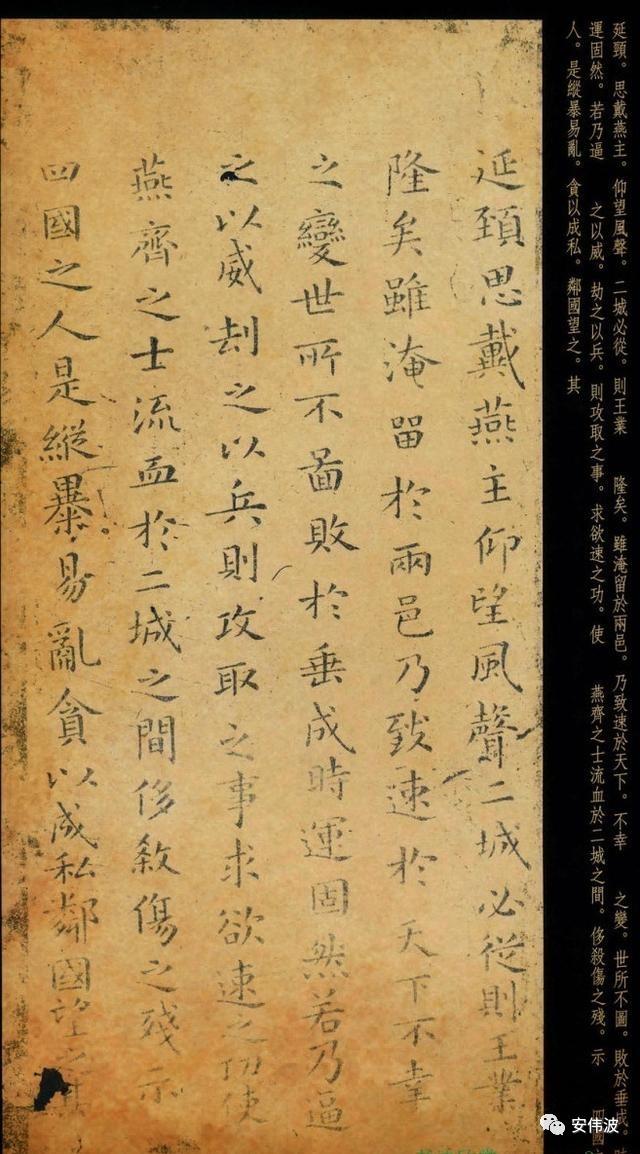 延頸。思戴燕主。仰望風聲。二城必從。則王業 隆矣。雖淹留於兩邑。乃致速於天下。不幸 之變。世所不圖。敗於垂成。
運固然。若乃逼 之以威。劫之以兵。則攻取之事。求欲速之功。使 燕齊之士流血於二城之間。侈殺傷之殘。示 四國
人。是縱暴易亂。貪以成私。鄰國望之。其
延頸思戴燕主仰望風聲二城必從則王業
隆矣雖淹留於兩邑乃致速於天下不幸
之變世所不啚敗於垂成時運固然若乃逼
之以威刦之以兵則攻取之事求欲速之功使
燕齊之士流血於二城之間侈煞傷之殘示
四國之人是縱暴易亂貪以成私鄰國望之其
安伟波